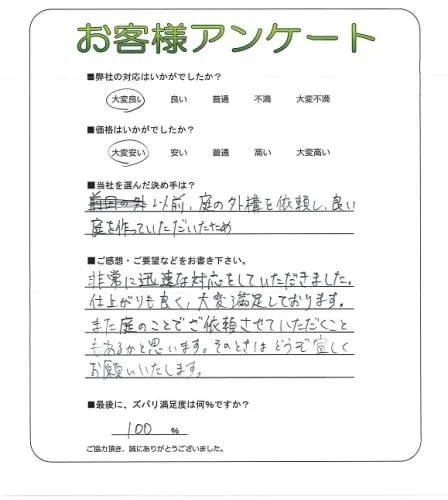 お客様アンケート
■弊社の対応はいかがでしたか？
大変良い 良い 普通 不満 大変不満
■価格はいかがでしたか？
大変安い 安い 普通 高い 大変高い
■当社を選んだ決め手は？
以前、庭の外構を依頼し、良い
庭を作っていただいたため
■ご感想・ご要望などをお書き下さい。
非常に迅速な対応をしていただきました。
仕上がりも良く、大変満足しております。
また庭のことでご依頼させていただくこと
もあるかと思います。そのときはどうぞ宜しく
お願いいたします。
■最後に、ズバリ満足度は何%ですか？
100 %
ご協力頂き、誠にありがとうございました。